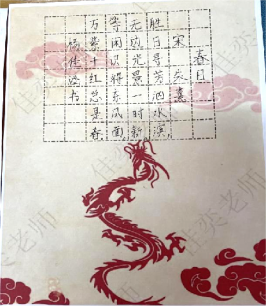 春日
宋 朱熹
胜日寻芳泗水滨
无边光景一时新
等闲识得东风面
万紫千红总是春
佳奕老师
佳奕老师